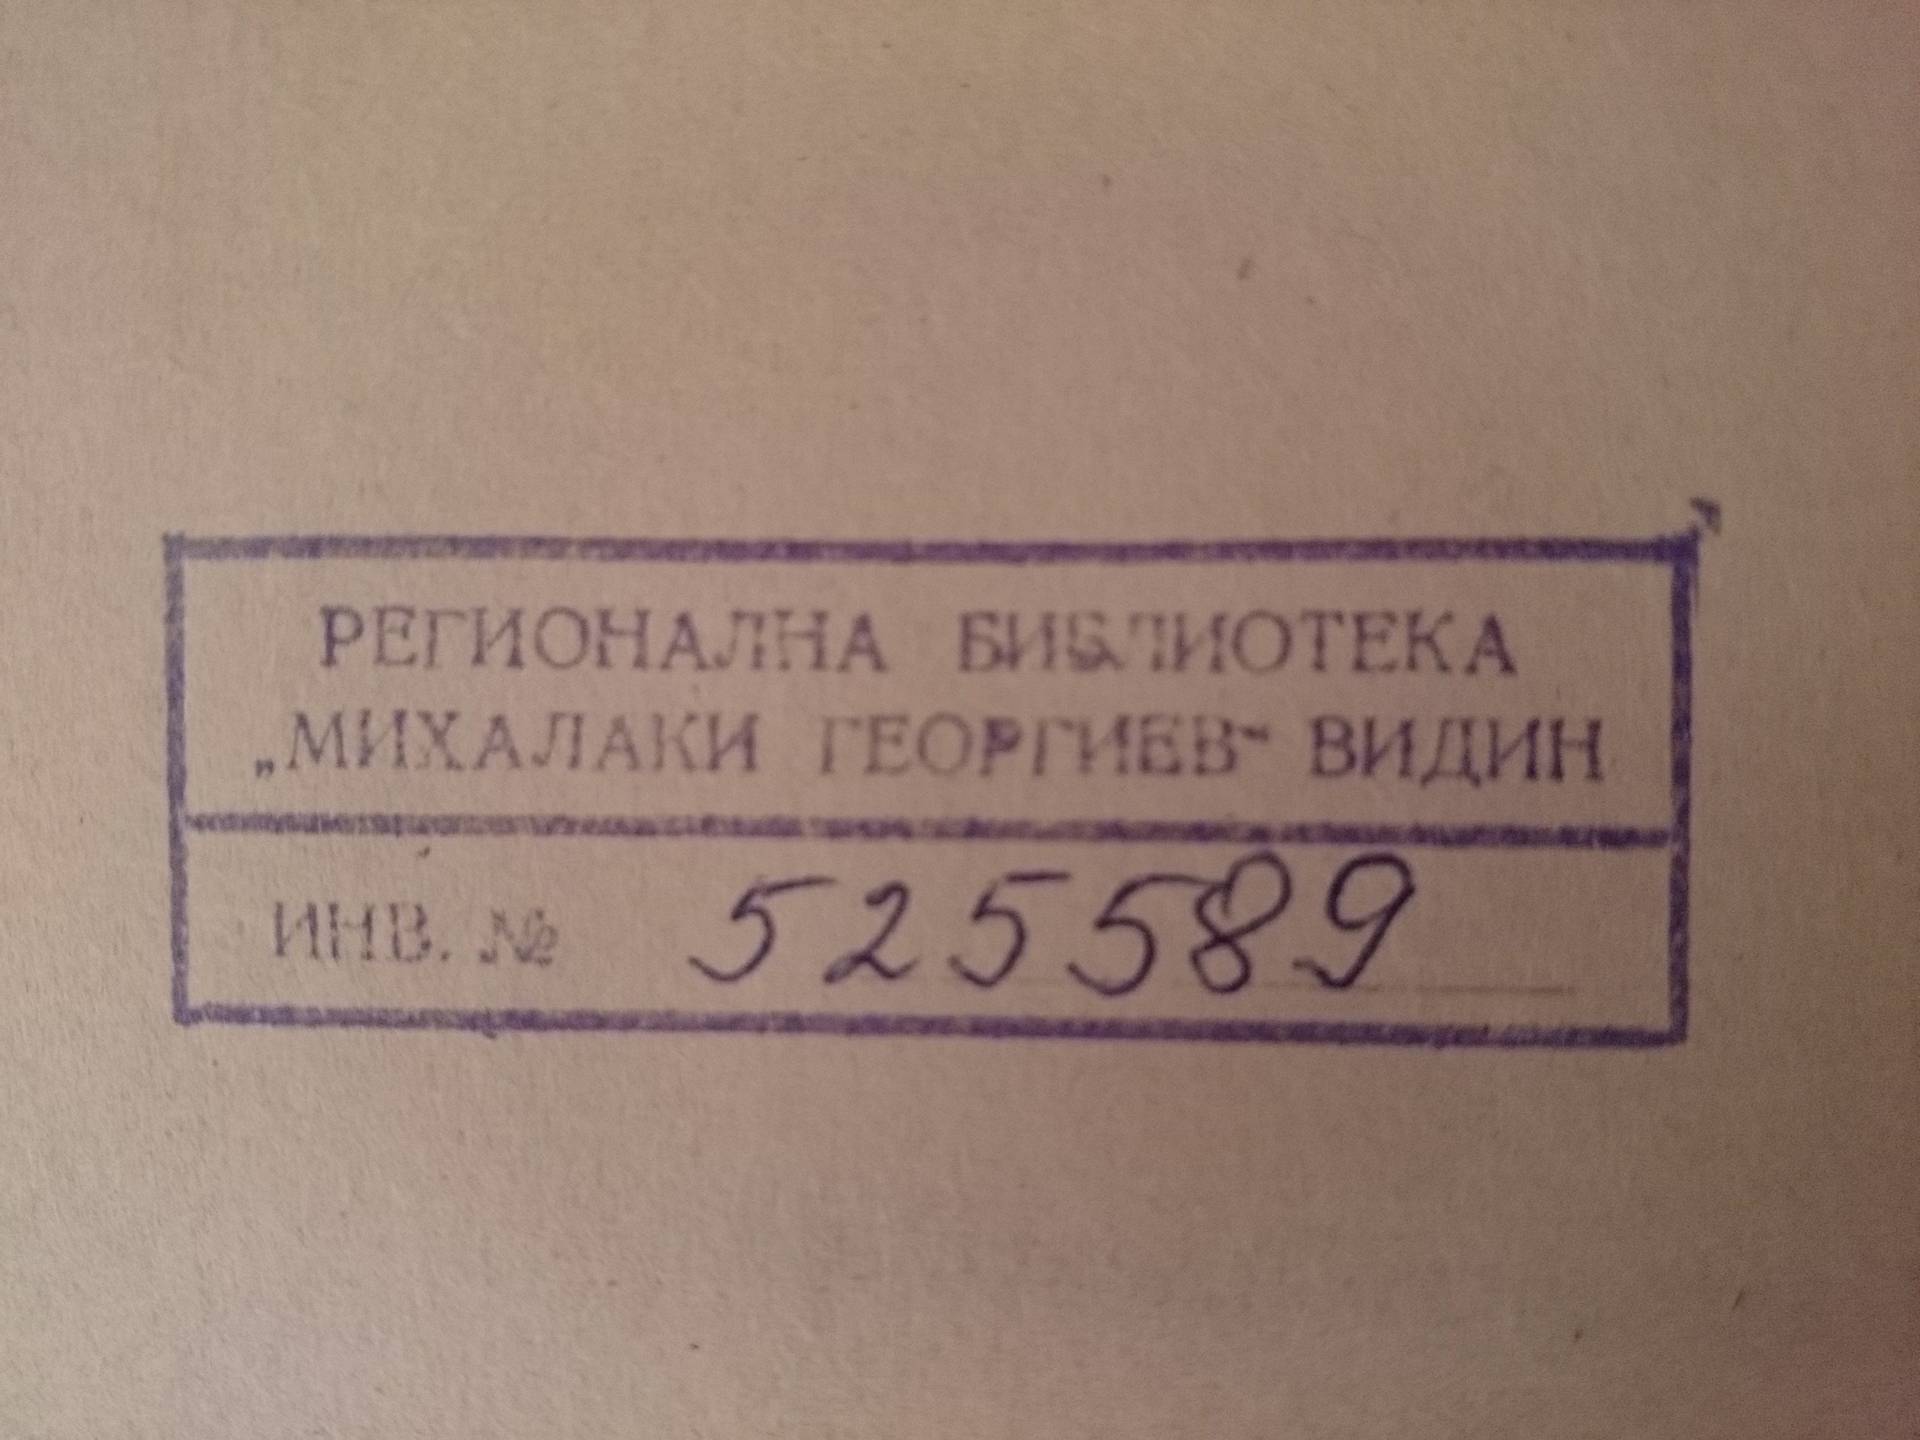 РЕГИОНАЛНА БИБЛИОТЕКА
„МИХАЛАКИ ГЕОРГИЕВ“ ВИДИН
ИНВ. № 525589